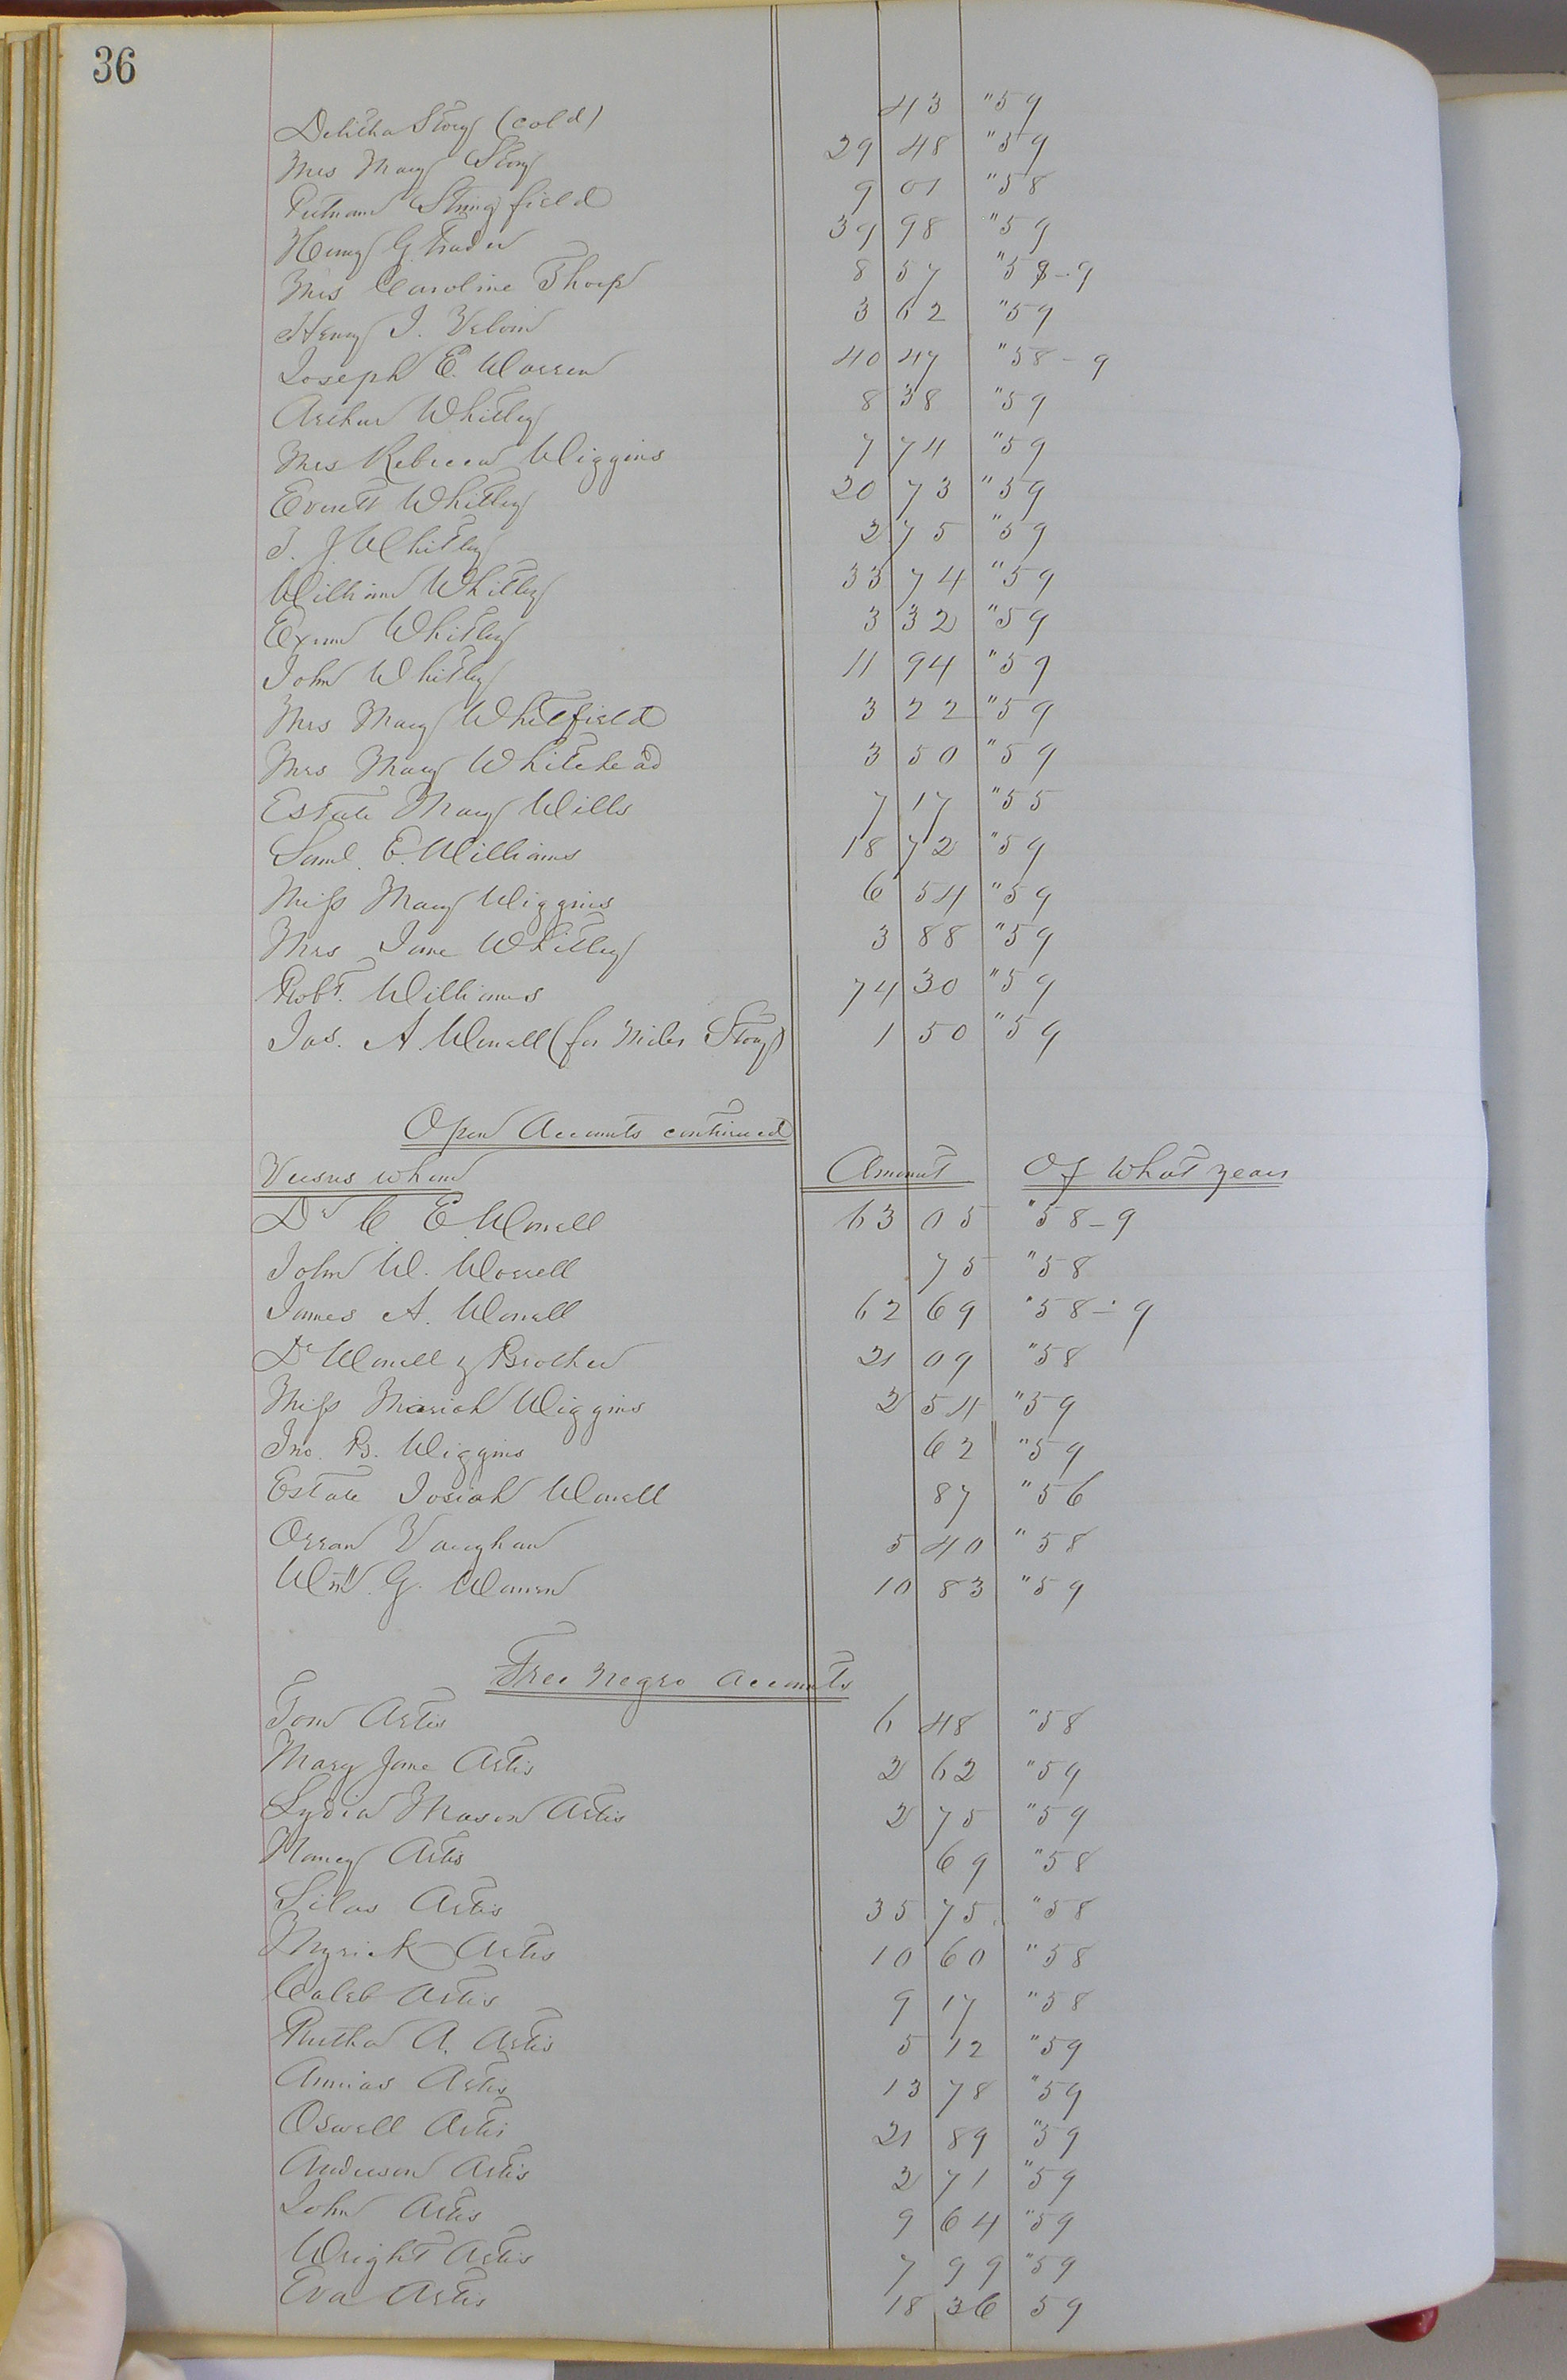 36
Delitha Story (cold) 43 "59
Mrs Mary Story 29 48 "59
Putnam Stringfield 9 01 "58
Henry G. Trader 39 98 "59
Mrs Caroline Thorp 8 57 "58-9
Henry J. Velvin 3 62 "59
Joseph E. Warren 40 47 "58-9
Arthur Whitley 8 38 "59
Mrs Rebecca Wiggins 7 74 "59
Everett Whitley 20 73 "59
J. J Whitley 2 75 "59
William Whitley 33 74 "59
Exum Whitley 3 32 "59
John Whitley 11 94 "59
Mrs Mary Whitfield 3 22 "59
Mrs Mary Whitehead 3 50 "59
Estate Mary Wills 7 17 "55
Saml. E. Williams 18 72 "59
Miss Mary Wiggins 6 54 "59
Mrs Jane Whitley 3 88 "59
Robt. Williams 74 30 "59
Jas. A. Worrell (for Miles Story) 1 50 "59
Open Accounts continued
Versus whom Amount Of What years
Dr C. E. Worrell 63 05 "58-9
John W. Worrell 75 "58
James A. Worrell 62 69 "58-9
Dr Worrell & Brother 21 09 "58
Miss Mariah Wiggins 2 54 "59
Jno. B. Wiggins 62 "59
Estate Josiah Worrell 87 "56
Orran Vaughan 5 40 "58
Wm. G. Warren 10 83 "59
Free Negro Accounts
Tom Artis 6 48 "58
Mary Jane Artis 2 62 "59
Lydia Mason Artis 2 75 "59
Nancy Artis 69 "58
Silas Artis 35 75 "58
Myrick Artis 10 60 "58
Caleb Artis 9 17 "58
Rutha A. Artis 5 12 "59
Annias Artis 13 78 "59
Oswell Artis 21 89 "59
Anderson Artis 2 71 "59
John Artis 9 64 "59
Wright Artis 7 99 "59
Eva Artis 18 36 59